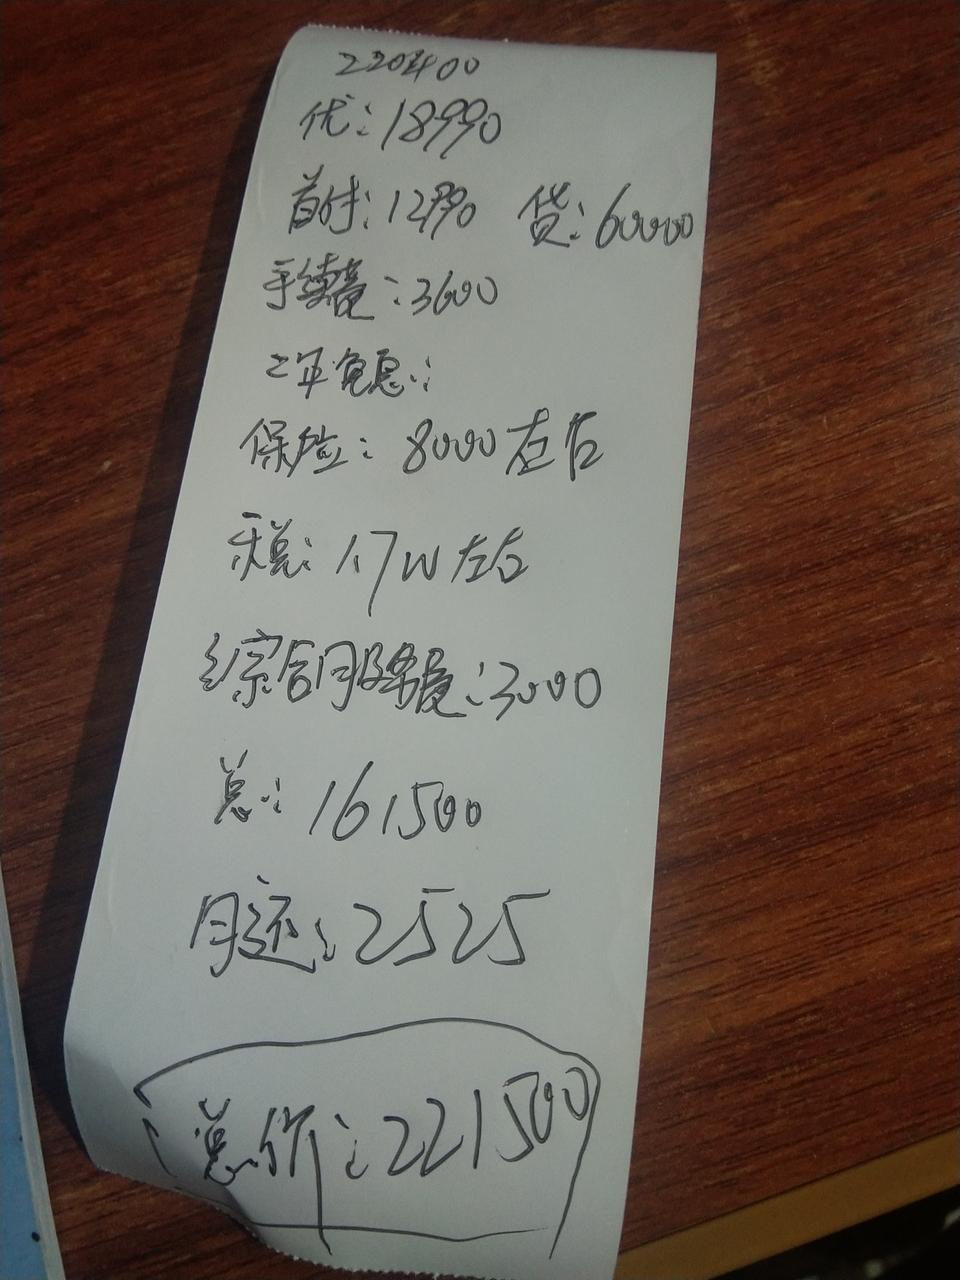 220400
优:18990
首付:12990 贷:60000
手续费:3600
二年免息:
保险:8000左右
税:1.7W左右
综合服务费:3000
总:161500
月还:2525
总价:221500